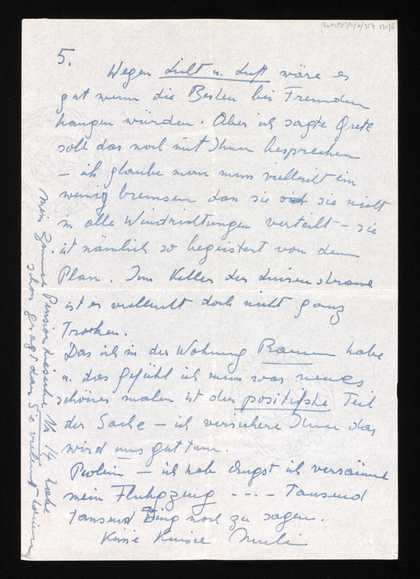 5.
Wegen Luft u. Luft wäre es
gut wenn die Besten bei Fremden
hangen würden. Aber ich sagte Grete
soll das noch mit Ihnen besprechen
– ich glaube man muss vielleicht ein
wenig bremsen dan sie sie nicht
in alle Windrichtungen verteilt – sie
ist nämlich so begeistert von dem
Plan. Im Keller der
ist es vielleicht doch nicht ganz
Trocken.
Das ich in der Wohnung Raum habe
u. das Gefühl ich muss was neues
schönes malen ist der positifste Teil
der Sache – ich versichere Ihnen das
wird uns gut tun.
– ich habe Angst ich versäume
mein Fluhgzeug ---- Tausend
tausend Ding noch zu sagen.
Küsse Küsse
Mein Zimmer Pension Nr 14 habe
schon gesagt dan Sie vielleicht